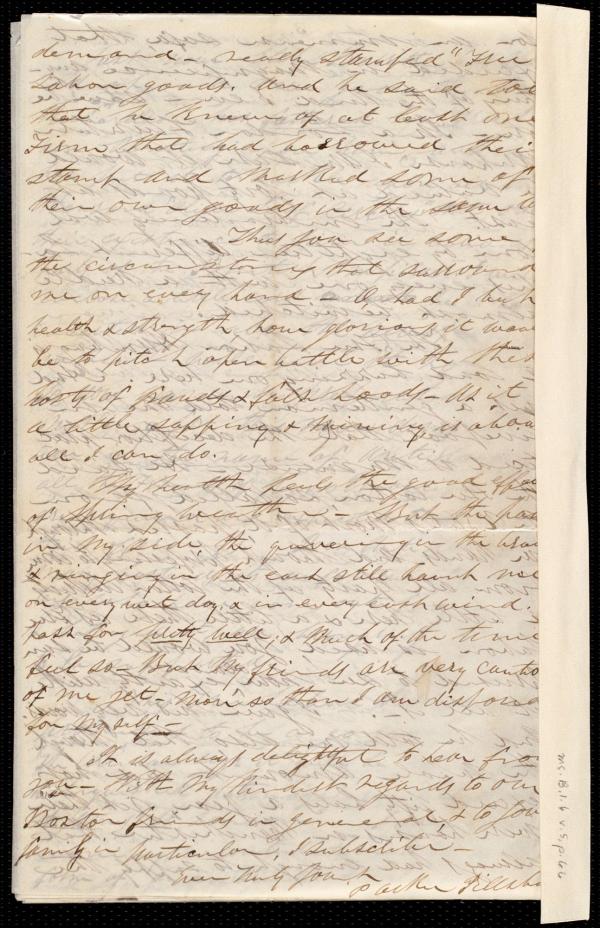 demand - ready stamped "Free
Labor goods. And he said too
that he knew of at least one
Firm that had borrowed their
stamp and marked some of
their own goods in the same
Thus you see some
the circumstances that surround
me on every hand - O had I but
health & strength, how glorious it would
be to pitch open battle with these
hosts of frauds & falsehoods - As it
a little sapping & mining is about
all I can do.
My health feels the good effect
of Spring weather - But the pain
in my side, the quivering in the
& ringing in the ears still haunt me
on every wet day, & in every east wind.
pass for pretty well, & much of the time
feel so - But my friends are very
of me yet - more so than I am disposed
for myself -
It is always delightful to hear from
you - With my kindest regards to our
Boston friends in general, & to your
family in particular, I subscribe -
Ever truly yours
Parker Pillsbu
Ms. B.1.6 v.5, p.66